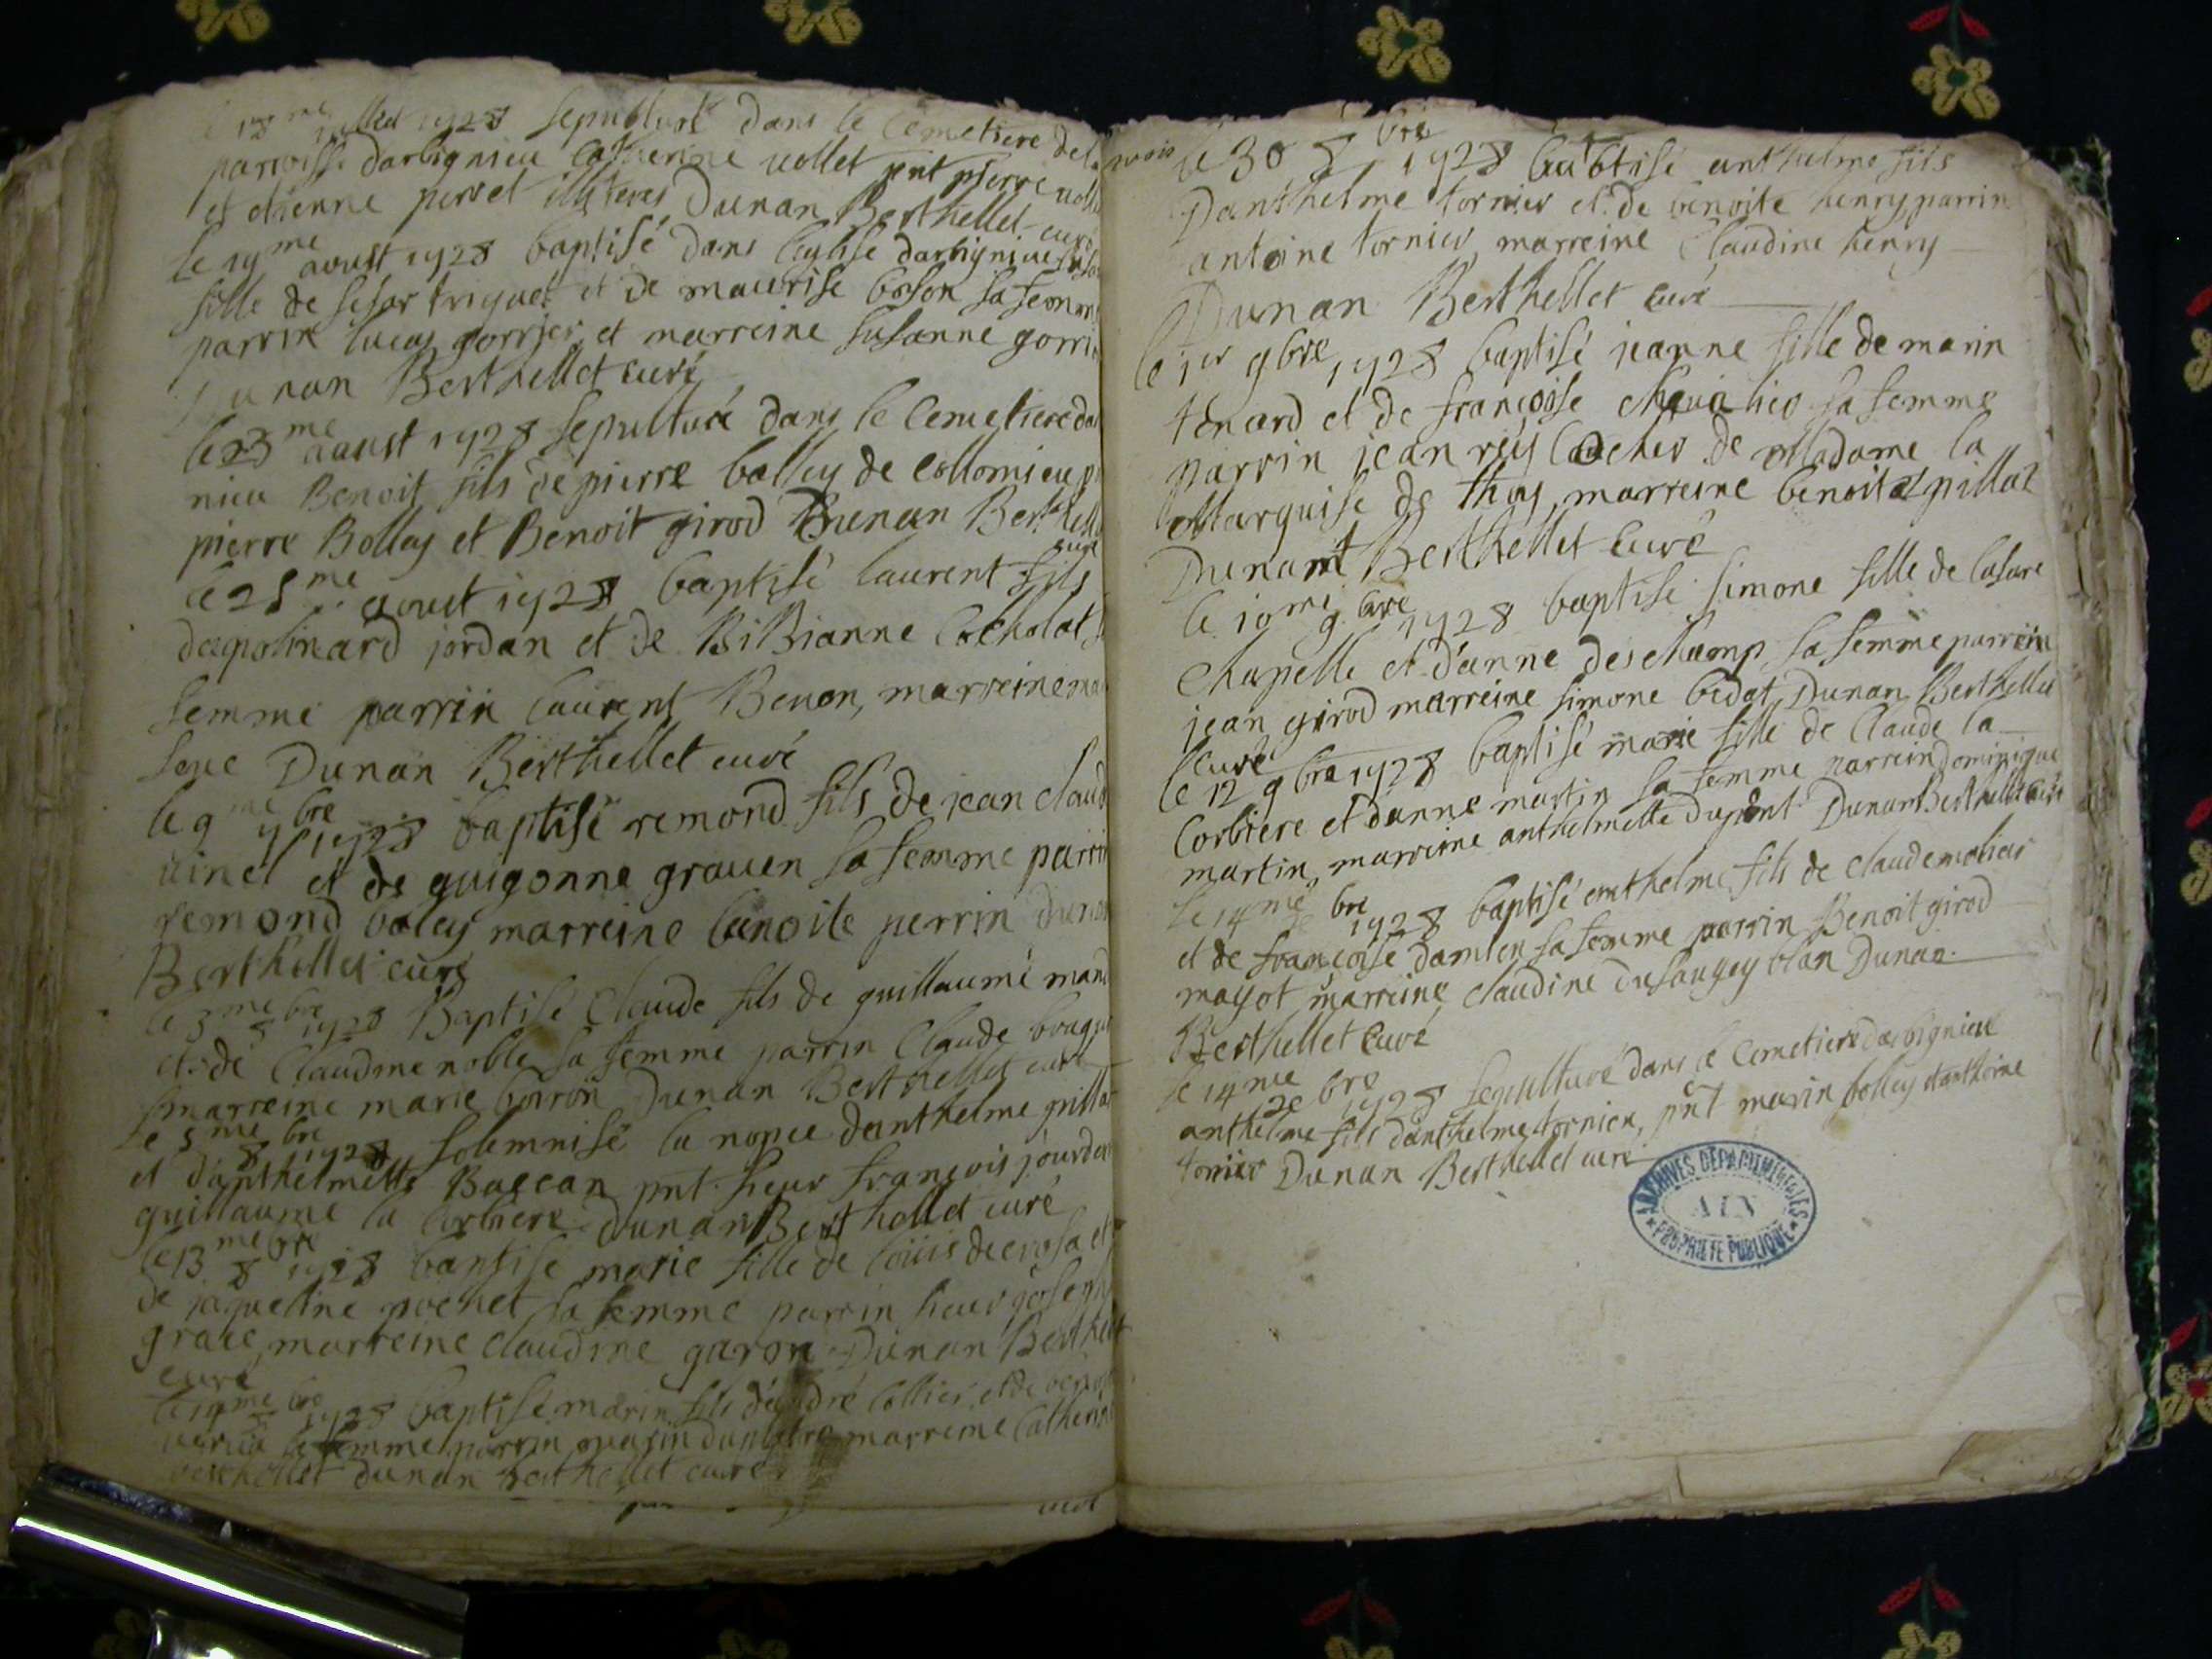 le 18me juillet 1728 sepulturé dans le Cemetiere de la
paroisse darbignieu Catherine vollet pnt pierre voll
et etienne perret illiteres Dunan Berthellet curé
le 19me aoust 1728 baptisé dans leglise darbignieu
fille de sesar triquet et de maurise boson sa femme
parrin lucas gorrjer et marreine susanne gorri
Dunan Berthellet curé
le 23me aoust 1728 sepulturé dans le Cemetiere da
nieu Benoit fils de pierre bolley de Collomieu
pierre Bolley et Benoit girod Dunan Berthell
curé
le 25me aoust 1728 baptisé laurent fils
dapolinard jordan et de BiBianne Cocholat
femme parrin laurent Benon, marreine
seue Dunan Berthellet curé
le 9me 7bre 1728 baptisé remond fils de jean claud
vinet et de guigonne graven sa femme parrin
remond boley marreine benoite perrin dunan
Berthellet curé
le 3me 8bre 1728 Baptisé Claude fils de guillaume
et de Claudine noble sa femme parrin Claude
marreine marie boiron Dunan Berthellet curé
le 5me 8bre 1728 solemnisé la nopce danthelme grillat
et danthelmette Baccan pnt sieur françois jourdan
guillaume la corbiere dunan Berthellet curé
le 13me 8bre 1728 baptise marie fille de loüis decrosa et
de jaqueline pochet sa femme parrin sieur joseph
grace, marreine claudine garon Dunan Berthellet
curé
le 19me 8bre 1728 baptisé marin fils dandré Collier et de
sa femme parrin marin marreine Catherin
berthellet dunan berthellet curé
le 30 8bre 1728 babtisé anthelme fils
Danthelme tornier et de benoite henry parrin
antoine tornier marreine Claudine henry
Dunan Berthellet curé
le 1er 9bre 1728 baptisé jeanne fille de marin
tenard et de françoise chevalier sa femme
parrin jean rey Cocher de Madame la
Marquise de thoy, marreine benoite pillat
Dunant Berthellet Curé
le 10me 9bre 1728 baptise simone fille de lasare
Chapelle et danne deschamp sa femme parrein
jean girod marreine simone bedat Dunan Berthellet
Curé
le 12 9bre 1728 baptisé marie fille de Claude la
Corbiere et danne martin sa femme parrein Dominique
martin, marreine anthelmette dupont Dunan Berthellet curé
le 14me bre 1728 baptisé enthelme fils de claude
et de françoise damien sa femme parrin Benoit girod
mayot marreine claudine dusaugey blan Dunan
Berthellet Curé
le 14me xbre 1728 sepulturé dans le Cemetiere darbignieu
anthelme fils danthelme tornier, pnt marin bolley et anthoine
tornier Dunan Berthellet curé
ARCHIVES DEPARTEMENTALES
AIN
PROPRIETE PUBLIQUE